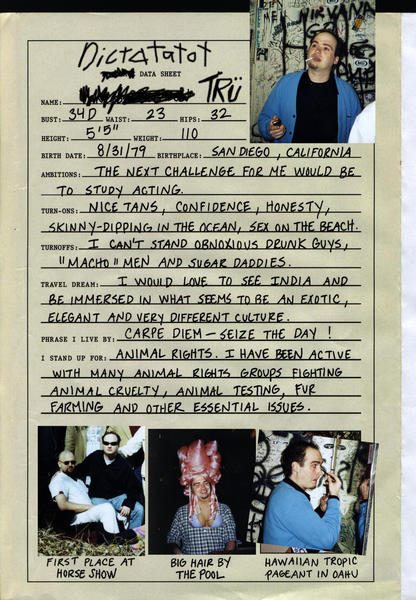 Dictatatot
DATA SHEET
NAME: TRÜ
BUST: 34D WAIST: 23 HIPS: 32
HEIGHT: 5'5" WEIGHT: 110
BIRTH DATE: 8/31/79 BIRTHPLACE: SAN DIEGO, CALIFORNIA
AMBITIONS: THE NEXT CHALLENGE FOR ME WOULD BE
TO STUDY ACTING.
TURN-ONS: NICE TANS, CONFIDENCE, HONESTY,
SKINNY-DIPPING IN THE OCEAN, SEX ON THE BEACH.
TURNOFFS: I CAN'T STAND OBNOXIOUS DRUNK GUYS,
"MACHO" MEN AND SUGAR DADDIES.
TRAVEL DREAM: I WOULD LOVE TO SEE INDIA AND
BE IMMERSED IN WHAT SEEMS TO BE AN EXOTIC,
ELEGANT AND VERY DIFFERENT CULTURE.
PHRASE I LIVE BY: CARPE DIEM — SEIZE THE DAY!
I STAND UP FOR: ANIMAL RIGHTS. I HAVE BEEN ACTIVE
WITH MANY ANIMAL RIGHTS GROUPS FIGHTING
ANIMAL CRUELTY, ANIMAL TESTING, FUR
FARMING AND OTHER ESSENTIAL ISSUES.
FIRST PLACE AT
HORSE SHOW
BIG HAIR BY
THE POOL
HAWAIIAN TROPIC
PAGEANT IN OAHU